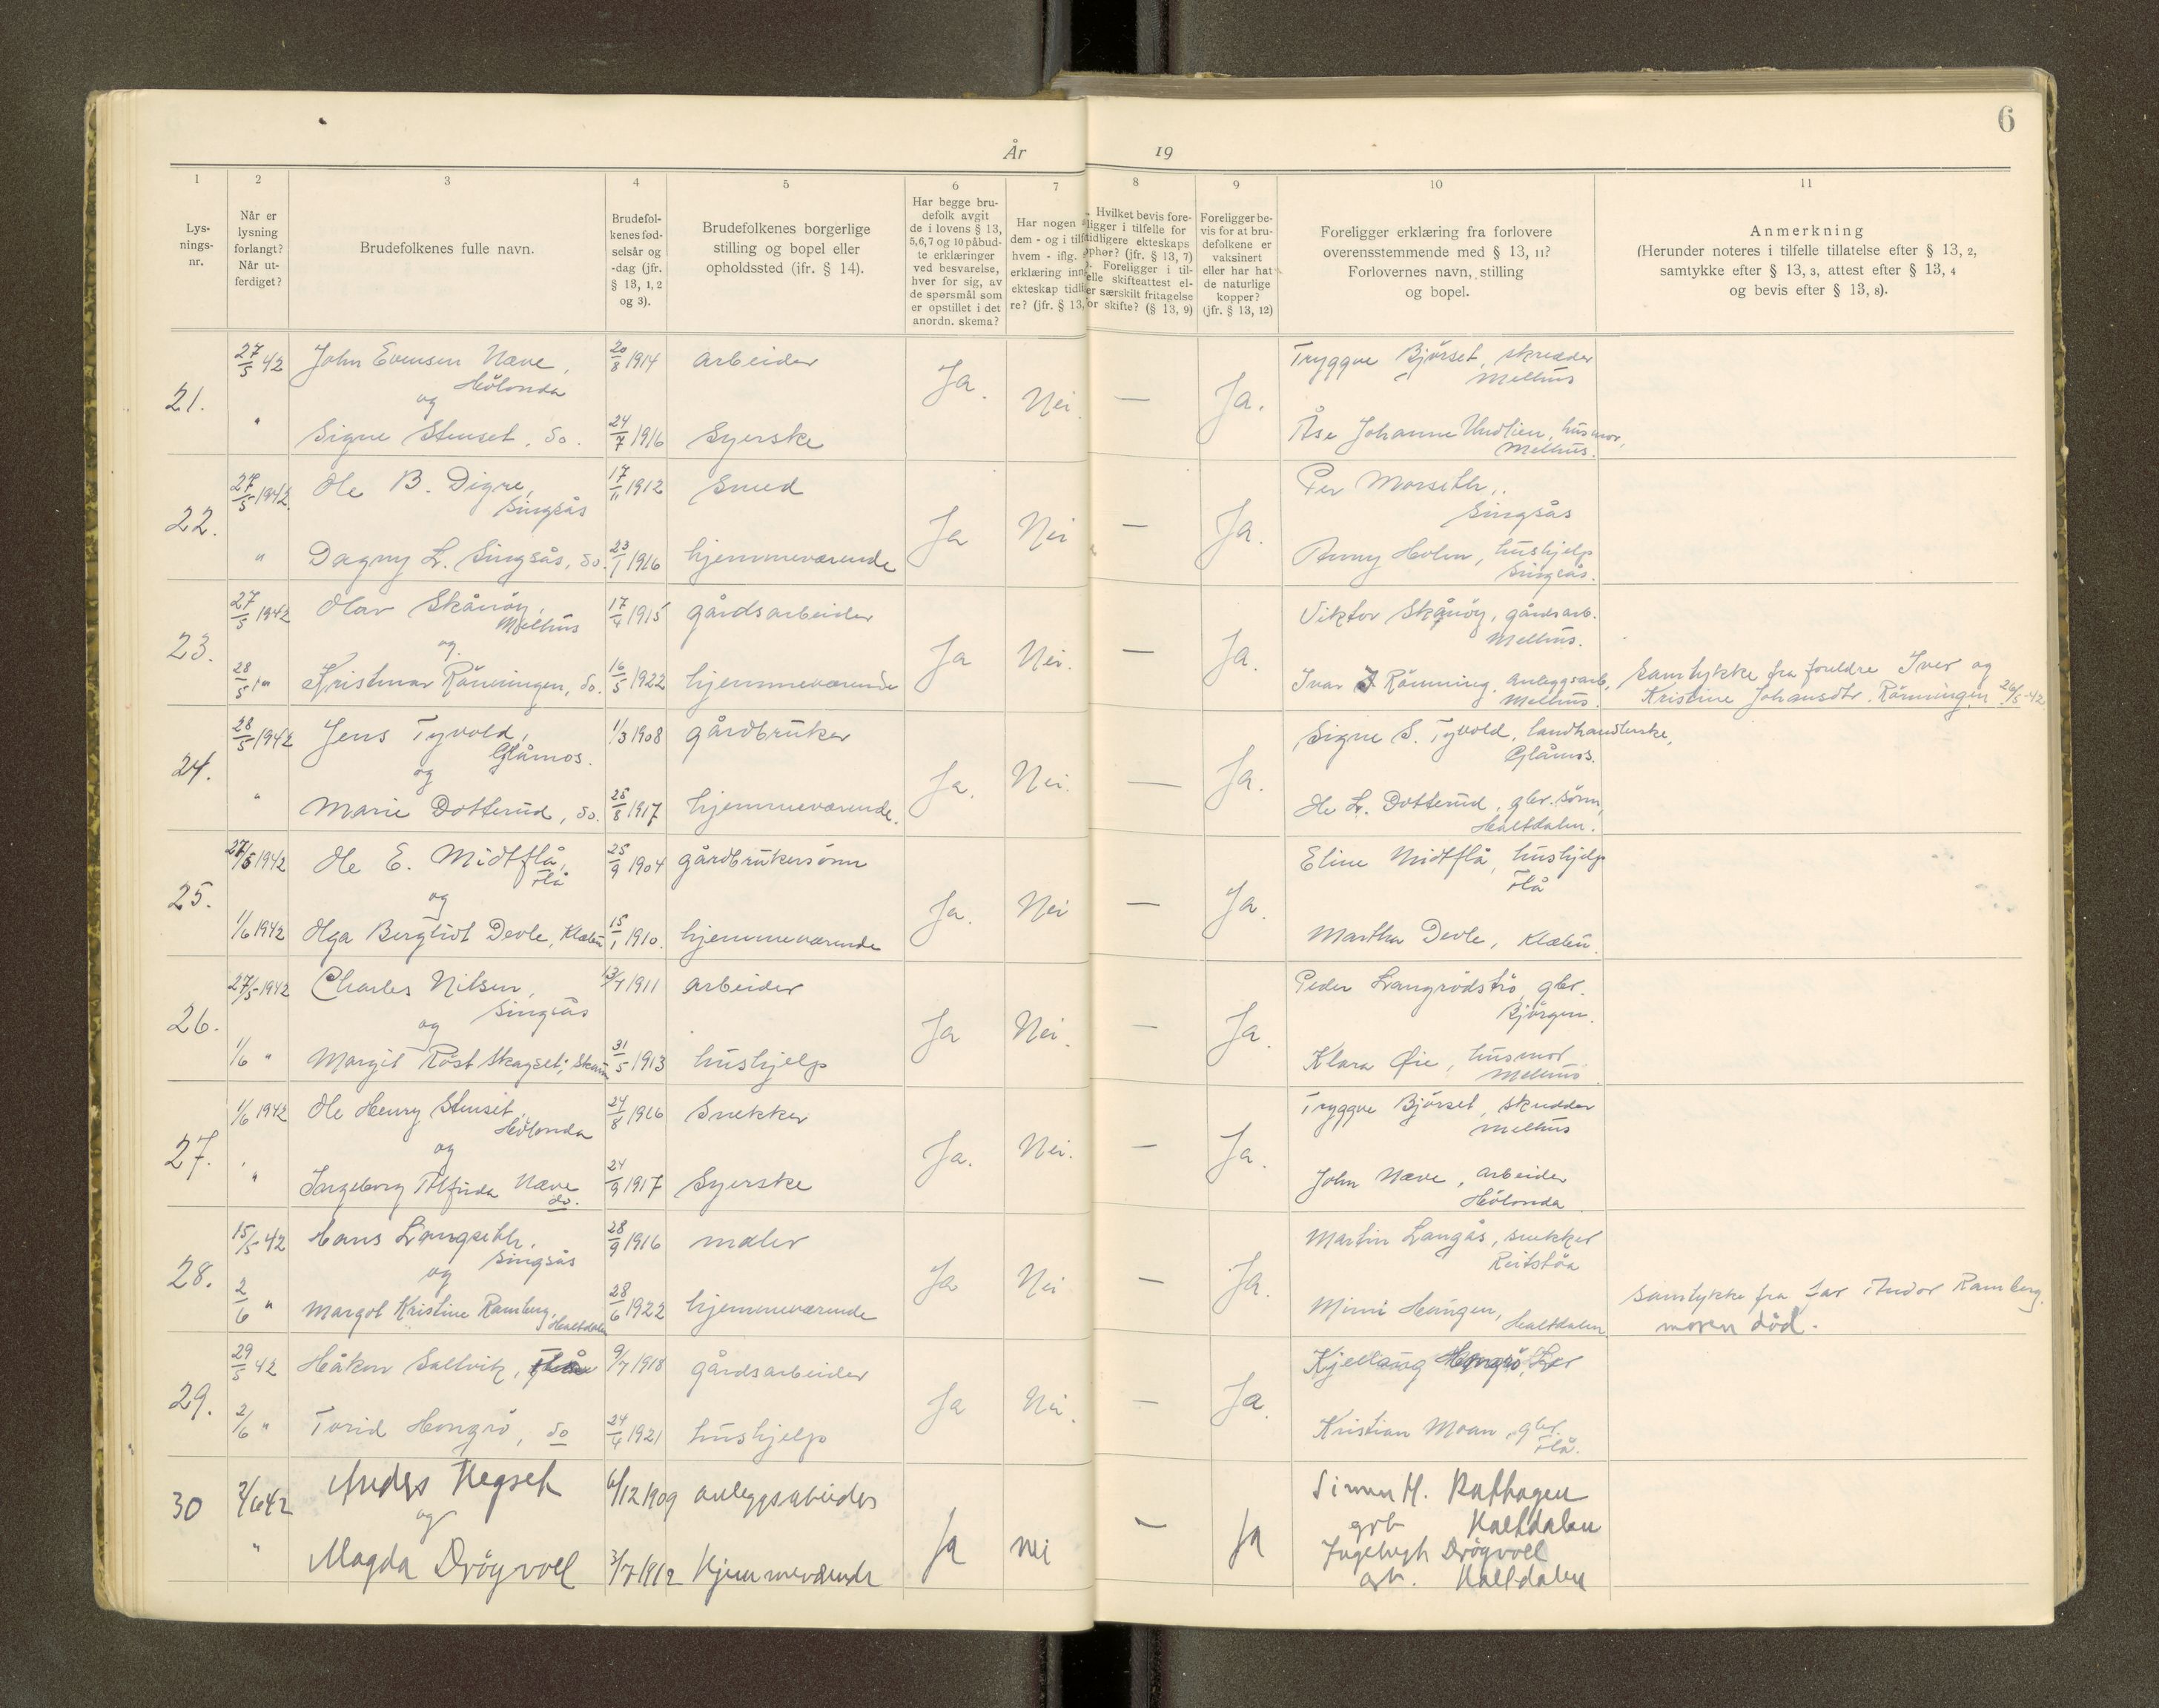 6
År 19
1 2 3 4 5 6 7 8 9 10 11
Lys-
nings-
nr.
Når er
lysning
forlangt?
Når ut-
ferdiget?
Brudefolkenes fulle navn.
Brudefol-
kenes fød-
selsår og
-dag (jfr.
§ 13, 1, 2
og 3).
Brudefolkenes borgerlige
stilling og bopel eller
opholdssted (jfr. § 14).
Har begge bru-
defolk avgit
de i lovens § 13,
5,6,7 og 10 påbud-
te erklæringer
ved besvarelse,
hver for sig, av
de spørsmål som
er opstillet i det
anordn. skema?
Har nogen
dem - og i tilf
hvem - iflg.
erklæring inn
ekteskap tidli
re? (jfr. § 13,
Hvilket bevis fore-
ligger i tilfelle for
tidligere ekteskaps
ophør? (jfr. § 13, 7)
Foreligger i til-
elle skifteattest el-
er særskilt fritagelse
for skifte? (§ 13, 9)
Foreligger be-
vis for at bru-
defolkene er
vaksinert
eller har hat
de naturlige
kopper?
(jfr. § 13, 12)
Foreligger erklæring fra forlovere
overensstemmende med § 13, 11?
Forlovernes navn, stilling
og bopel.
Anmerkning
(Herunder noteres i tilfelle tillatelse efter § 13, 2,
samtykke efter § 13, 3, attest efter § 13, 4
og bevis efter § 13, 8).
27/5 42 John Evensen Næve, 20/8 1914 arbeider Tryggve Bjørset, skredder
Hölonda Melhus
21. og Ja. Nei. — Ja.
" Signe Stenset, do. 24/7 1916 Syerske Åse Johanne Undlien, husmor,
Melhus.
27/5 1942 Ole B. Digre, 17/11 1912 Smed Per Morseth,
Singsås Singsås
22. Ja Nei — Ja.
" Dagny L. Singsås, do. 23/1 1916 hjemmeværende Anny Holm, hushjelp
Singsås.
27/5 1942 Olav Skånöy, 17/4 1915 gårdsarbeider Viktor Skånöy, gårdsarb.
Melhus Melhus.
23. og Ja Nei. — Ja.
28/5 " Rönningen, do. 16/5 1922 hjemmeværende Ivar J Rönning, anleggsarb, Samtykke fra foreldre Iver og
Melhus. Kristine Johansdtr. Rönningen 26/5-42
28/5 1942 Jens Tyvold, 1/3 1908 gårdbruker Signe S. Tyvold, landhandlerske,
Glåmos. Glåmos.
24. og Ja. Nei. — Ja.
" Marie Dotterud, do. 25/8 1917 hjemmeværende. Ole L. Dotterud, gbr. sönn,
Haltdalen.
27/5 1942 Ole E. Midtflå, 25/9 1904 gårdbrukersönn Eline Midtflå, hushjelp
Flå Flå
25. og Ja. Nei — Ja.
1/6 1942 Olga Bergliot Devle, Klæbu 15/1 1910. hjemmeværende Martha Devle, Klæbu.
27/5-1942 Charles Nilsen, 13/7 1911 arbeider Peder Langrödströ, gbr.
Singsås Bjørgen.
26. og Ja Nei. — Ja.
1/6 " Margit Röst Skagset, Skaun 31/5 1913 hushjelp Klara Øie, husmor
Melhus
1/6 1942 Ole Henry Stenset, 24/8 1916 Snekker Tryggve Bjørset, skredder
Hölonda Melhus
27. og Ja. Nei. — Ja.
" Ingeborg Alfrida Næve 24/9 1917 Syerske John Næve, arbeider
do. Hölonda.
15/5-42 Hans Langseth, 28/9 1916 maler Martin Langås, snekker
Singsås Reitstöa
28. og Ja Nei — Ja.
2/6 " Margot Kristine Ramberg, 28/6 1922 hjemmeværende Mimi Haugen, Samtykke fra far Andor Ramberg.
Haltdalen Haltdalen moren död.
29/5 42 Håkon Saltvik, Flå 9/7 1918 gårdsarbeider Kjellaug Hongrö, Ler
29. Ja Nei. — Ja.
2/6 " Torid Hongrö, do 24/4 1921 hushjelp Kristian Moan, gbr.
Flå.
2/6 42 Anders Hegset 6/12 1909 anleggsarbeider Simen H. Rathagen
30 og gbr Haltdalen
Ja nei — Ja
" Magda Drögvoll 3/7 1912 Hjemmeværende Ingebrigt Drögvoll
gbr. Haltdalen